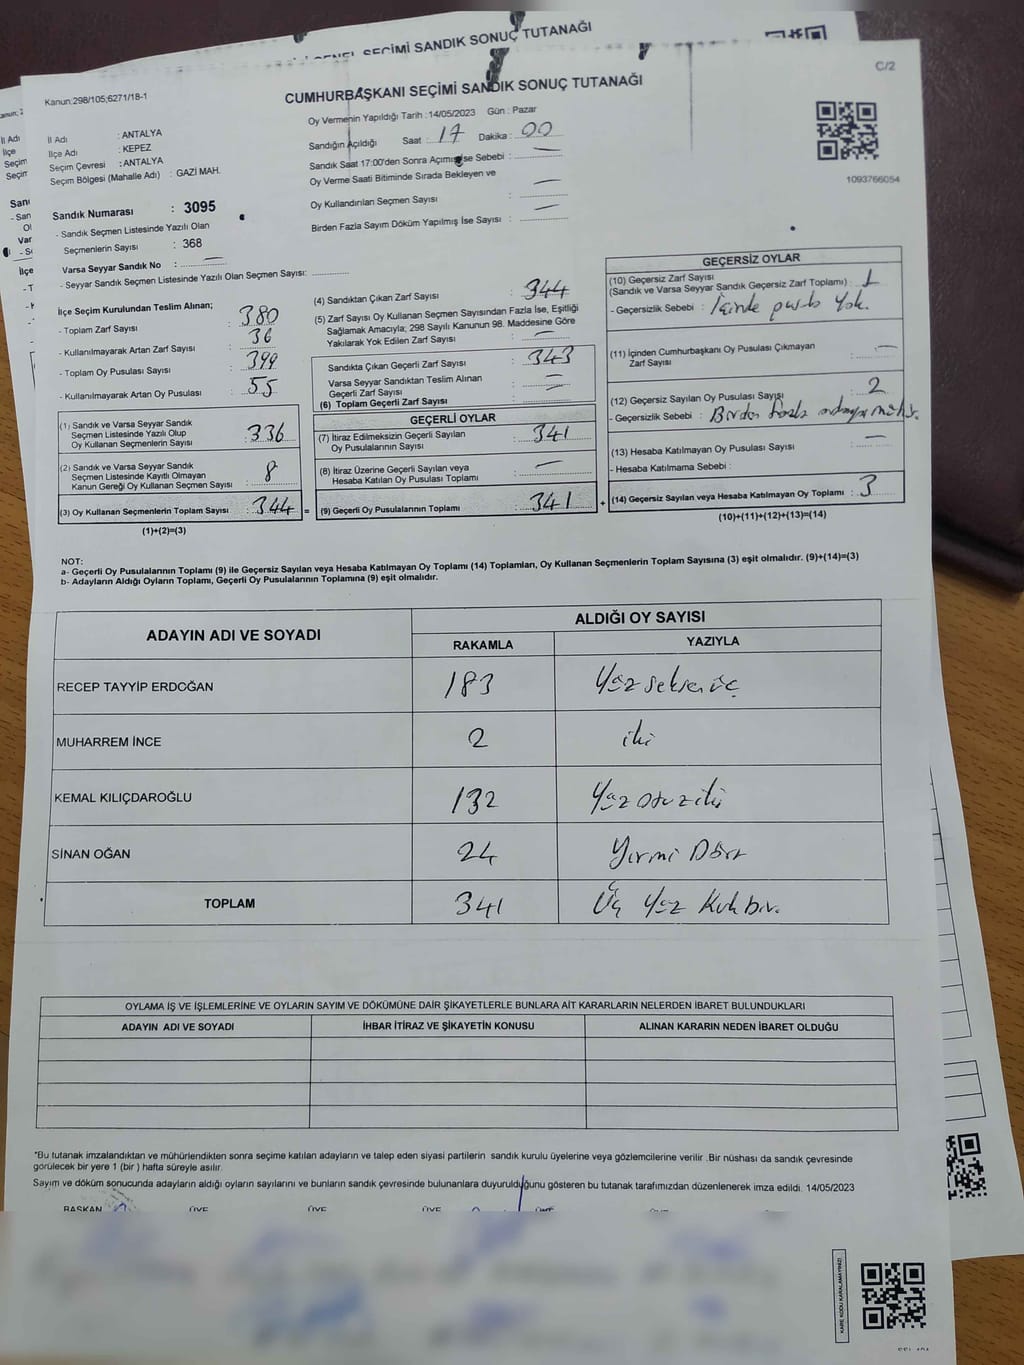 GENEL SEÇİMİ SANDIK SONUÇ TUTANAĞI
C/2
Kanun:298/105;6271/18-1
CUMHURBAŞKANI SEÇİMİ SANDIK SONUÇ TUTANAĞI
İl Adı : ANTALYA
İlçe Adı : KEPEZ
Seçim Çevresi : ANTALYA
Seçim Bölgesi (Mahalle Adı) : GAZİ MAH.
Oy Vermenin Yapıldığı Tarih : 14/05/2023 Gün : Pazar
Sandığın Açıldığı Saat : 17 Dakika : 00
Sandık Saat 17:00'den Sonra Açımış İse Sebebi : —
Oy Verme Saati Bitiminde Sırada Bekleyen ve
Oy Kullandırılan Seçmen Sayısı : —
Birden Fazla Sayım Döküm Yapılmış İse Sayısı : —
1093766054
Sandık Numarası : 3095
- Sandık Seçmen Listesinde Yazılı Olan
Seçmenlerin Sayısı : 368
Varsa Seyyar Sandık No : —
- Seyyar Sandık Seçmen Listesinde Yazılı Olan Seçmen Sayısı:
İlçe Seçim Kurulundan Teslim Alınan;
- Toplam Zarf Sayısı : 380
- Kullanılmayarak Artan Zarf Sayısı : 36
- Toplam Oy Pusulası Sayısı : 399
- Kullanılmayarak Artan Oy Pusulası : 55
(1) Sandık ve Varsa Seyyar Sandık
Seçmen Listesinde Yazılı Olup
Oy Kullanan Seçmenlerin Sayısı : 336
(2) Sandık ve Varsa Seyyar Sandık
Seçmen Listesinde Kayıtlı Olmayan
Kanun Gereği Oy Kullanan Seçmen Sayısı : 8
(3) Oy Kullanan Seçmenlerin Toplam Sayısı : 344 =
(1)+(2)=(3)
(4) Sandıktan Çıkan Zarf Sayısı : 344
(5) Zarf Sayısı Oy Kullanan Seçmen Sayısından Fazla İse, Eşitliği
Sağlamak Amacıyla; 298 Sayılı Kanunun 98. Maddesine Göre
Yakılarak Yok Edilen Zarf Sayısı : —
Sandıkta Çıkan Geçerli Zarf Sayısı : 343
Varsa Seyyar Sandıktan Teslim Alınan
Geçerli Zarf Sayısı : —
(6) Toplam Geçerli Zarf Sayısı : —
GEÇERLİ OYLAR
(7) İtiraz Edilmeksizin Geçerli Sayılan
Oy Pusulalarının Sayısı : 341
(8) İtiraz Üzerine Geçerli Sayılan veya
Hesaba Katılan Oy Pusulası Toplamı : —
(9) Geçerli Oy Pusulalarının Toplamı : 341 +
GEÇERSİZ OYLAR
(10) Geçersiz Zarf Sayısı
(Sandık ve Varsa Seyyar Sandık Geçersiz Zarf Toplamı) : 1
- Geçersizlik Sebebi : İçinde Yok.
(11) İçinden Cumhurbaşkanı Oy Pusulası Çıkmayan
Zarf Sayısı : —
(12) Geçersiz Sayılan Oy Pusulası Sayısı : 2
- Geçersizlik Sebebi : Birden fazla
(13) Hesaba Katılmayan Oy Pusulası Sayısı : —
- Hesaba Katılmama Sebebi :
(14) Geçersiz Sayılan veya Hesaba Katılmayan Oy Toplamı : 3
(10)+(11)+(12)+(13)=(14)
NOT:
a- Geçerli Oy Pusulalarının Toplamı (9) ile Geçersiz Sayılan veya Hesaba Katılmayan Oy Toplamı (14) Toplamları, Oy Kullanan Seçmenlerin Toplam Sayısına (3) eşit olmalıdır. (9)+(14)=(3)
b- Adayların Aldığı Oyların Toplamı, Geçerli Oy Pusulalarının Toplamına (9) eşit olmalıdır.
ADAYIN ADI VE SOYADI
ALDIĞI OY SAYISI
RAKAMLA YAZIYLA
RECEP TAYYİP ERDOĞAN 183 Yüz seksen üç
MUHARREM İNCE 2 iki
KEMAL KILIÇDAROĞLU 132 Yüz otuz iki
SİNAN OĞAN 24 Yirmi Dört
TOPLAM 341 Üç Yüz Kırk bir.
OYLAMA İŞ VE İŞLEMLERİNE VE OYLARIN SAYIM VE DÖKÜMÜNE DAİR ŞİKAYETLERLE BUNLARA AİT KARARLARIN NELERDEN İBARET BULUNDUKLARI
ADAYIN ADI VE SOYADI İHBAR İTİRAZ VE ŞİKAYETİN KONUSU ALINAN KARARIN NEDEN İBARET OLDUĞU
*Bu tutanak imzalandıktan ve mühürlendikten sonra seçime katılan adayların ve talep eden siyasi partilerin sandık kurulu üyelerine veya gözlemcilerine verilir .Bir nüshası da sandık çevresinde
görülecek bir yere 1 (bir ) hafta süreyle asılır.
Sayım ve döküm sonucunda adayların aldığı oyların sayılarını ve bunların sandık çevresinde bulunanlara duyurulduğunu gösteren bu tutanak tarafımızdan düzenlenerek imza edildi. 14/05/2023
BAŞKAN ÜYE ÜYE ÜYE ÜYE
KARE KODU KARALAMAYINIZ!